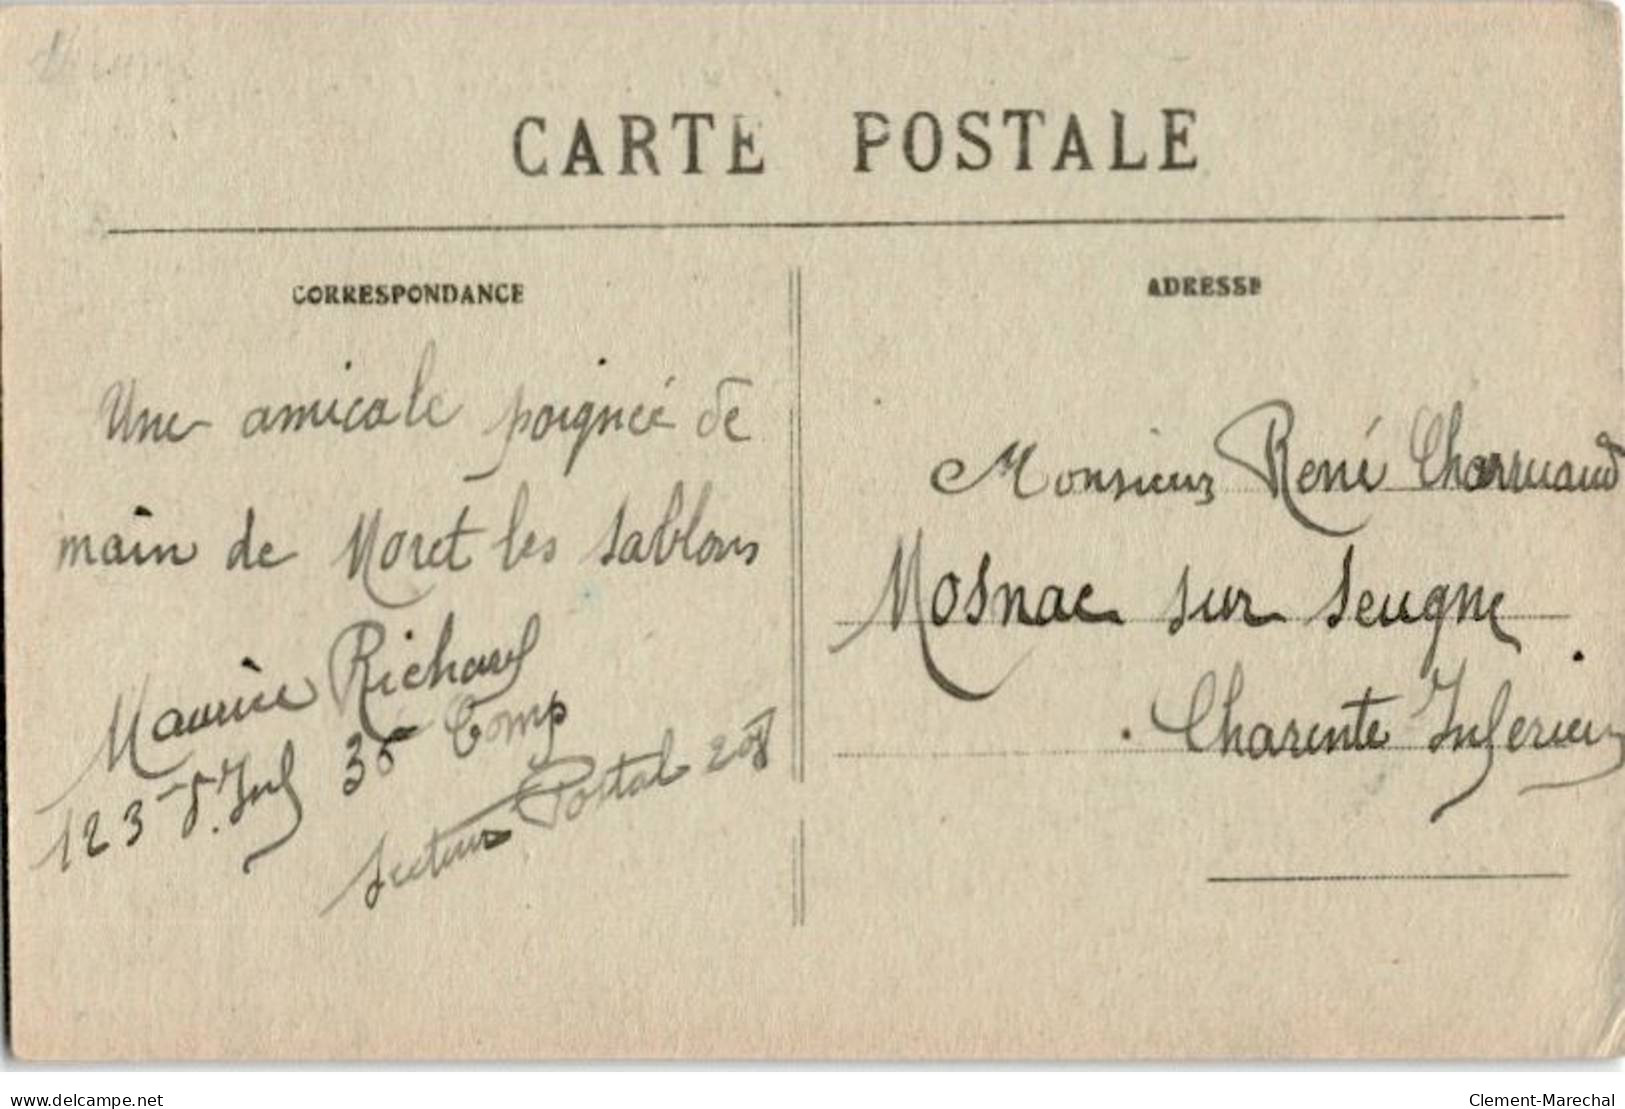 CARTE POSTALE
CORRESPONDANCE
Une amicale poignée de
main de Moret les Sablons
Maurice Richard
123 d'Inf 35 Comp
Secteur Postal 208
ADRESSE
Monsieur René Charruaud
Mosnac sur Seugne
Charente Inferieur
www.delcampe.net
Clement-Marechal